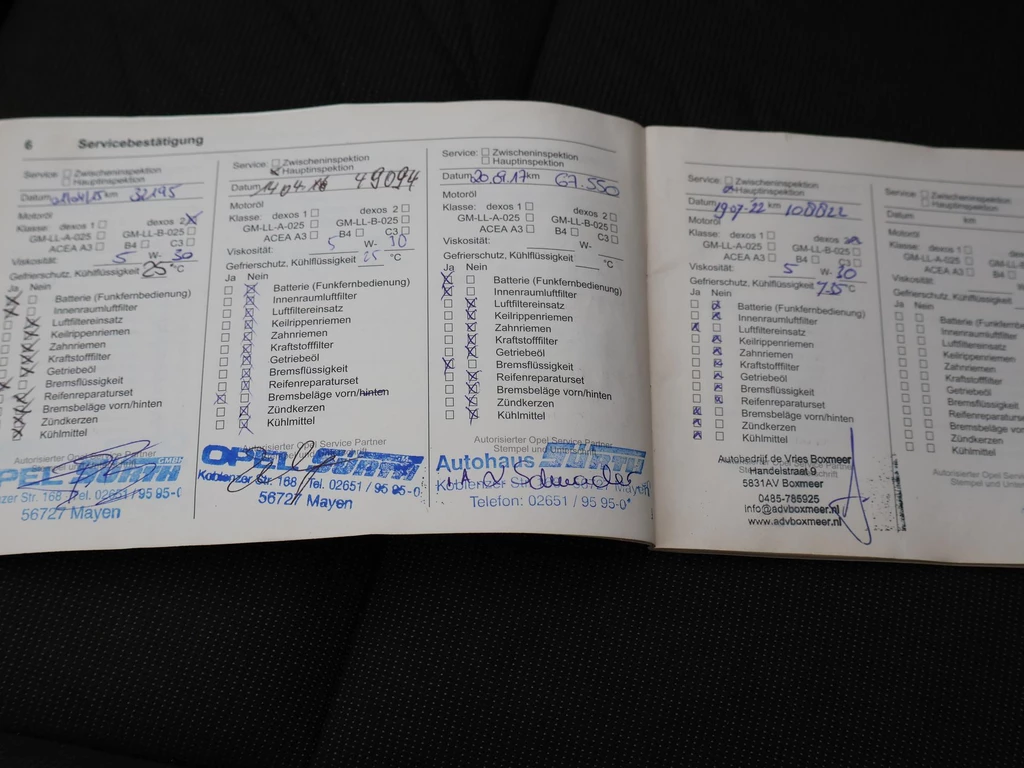 6 Servicebestätigung
Service: Zwischeninspektion
Hauptinspektion
Datum 04/15 km 32195
Motoröl
Klasse: dexos 1 dexos 2
GM-LL-A-025 GM-LL-B-025
ACEA A3 B4 C3
Viskosität: 5 W- 30
Gefrierschutz, Kühlflüssigkeit 25 °C
Ja Nein
Batterie (Funkfernbedienung)
Innenraumluftfilter
Luftfiltereinsatz
Keilrippenriemen
Zahnriemen
Kraftstofffilter
Getriebeöl
Bremsflüssigkeit
Reifenreparaturset
Bremsbeläge vorn/hinten
Zündkerzen
Kühlmittel
Autorisierter Opel Service Partner
OPEL GMBH
Koblenzer Str. 168 Tel. 02651 / 95 95-0
56727 Mayen
Service: Zwischeninspektion
Hauptinspektion
Datum 14.04.16 49094
Motoröl
Klasse: dexos 1 dexos 2
GM-LL-A-025 GM-LL-B-025
ACEA A3 B4 C3
Viskosität: 5 W- 30
Gefrierschutz, Kühlflüssigkeit 25 °C
Ja Nein
Batterie (Funkfernbedienung)
Innenraumluftfilter
Luftfiltereinsatz
Keilrippenriemen
Zahnriemen
Kraftstofffilter
Getriebeöl
Bremsflüssigkeit
Reifenreparaturset
Bremsbeläge vorn/hinten
Zündkerzen
Kühlmittel
Autorisierter Opel Service Partner
OPEL
Koblenzer Str. 168 Tel. 02651 / 95 95-0
56727 Mayen
Service: Zwischeninspektion
Hauptinspektion
Datum 20.09.17 km 67.550
Motoröl
Klasse: dexos 1 dexos 2
GM-LL-A-025 GM-LL-B-025
ACEA A3 B4 C3
Viskosität: W-
Gefrierschutz, Kühlflüssigkeit °C
Ja Nein
Batterie (Funkfernbedienung)
Innenraumluftfilter
Luftfiltereinsatz
Keilrippenriemen
Zahnriemen
Kraftstofffilter
Getriebeöl
Bremsflüssigkeit
Reifenreparaturset
Bremsbeläge vorn/hinten
Zündkerzen
Kühlmittel
Autorisierter Opel Service Partner
Stempel und
Autohaus
Koblenzer Mayen
Telefon: 02651 / 95 95-0
Service: Zwischeninspektion
Hauptinspektion
Datum 19-07-22 km 108822
Motoröl
Klasse: dexos 1 dexos
GM-LL-A-025 GM-LL-B-025
ACEA A3 B4 C3
Viskosität: 5 W- 30
Gefrierschutz, Kühlflüssigkeit °C
Ja Nein
Batterie (Funkfernbedienung)
Innenraumluftfilter
Luftfiltereinsatz
Keilrippenriemen
Zahnriemen
Kraftstofffilter
Getriebeöl
Bremsflüssigkeit
Reifenreparaturset
Bremsbeläge vorn/hinten
Zündkerzen
Kühlmittel
Autobedrijf de Vries Boxmeer
Handelstraat 9
5831AV Boxmeer
0485-785925
info@advboxmeer.nl
www.advboxmeer.nl
Service: Zwischeninspektion
Hauptinspektion
Datum km
Motoröl
Klasse: dexos 1
GM-LL-A-025 GM-LL
ACEA A3 B4
Viskosität:
Gefrierschutz, Kühlflüssigkeit
Ja Nein
Batterie (Funkfernbe
Innenraumluftfilter
Luftfiltereinsatz
Keilrippenriemen
Zahnriemen
Kraftstofffilter
Getriebeöl
Bremsflüssigkeit
Reifenreparaturset
Bremsbeläge vorn/
Zündkerzen
Kühlmittel
Autorisierter Opel Service
Stempel und Unter